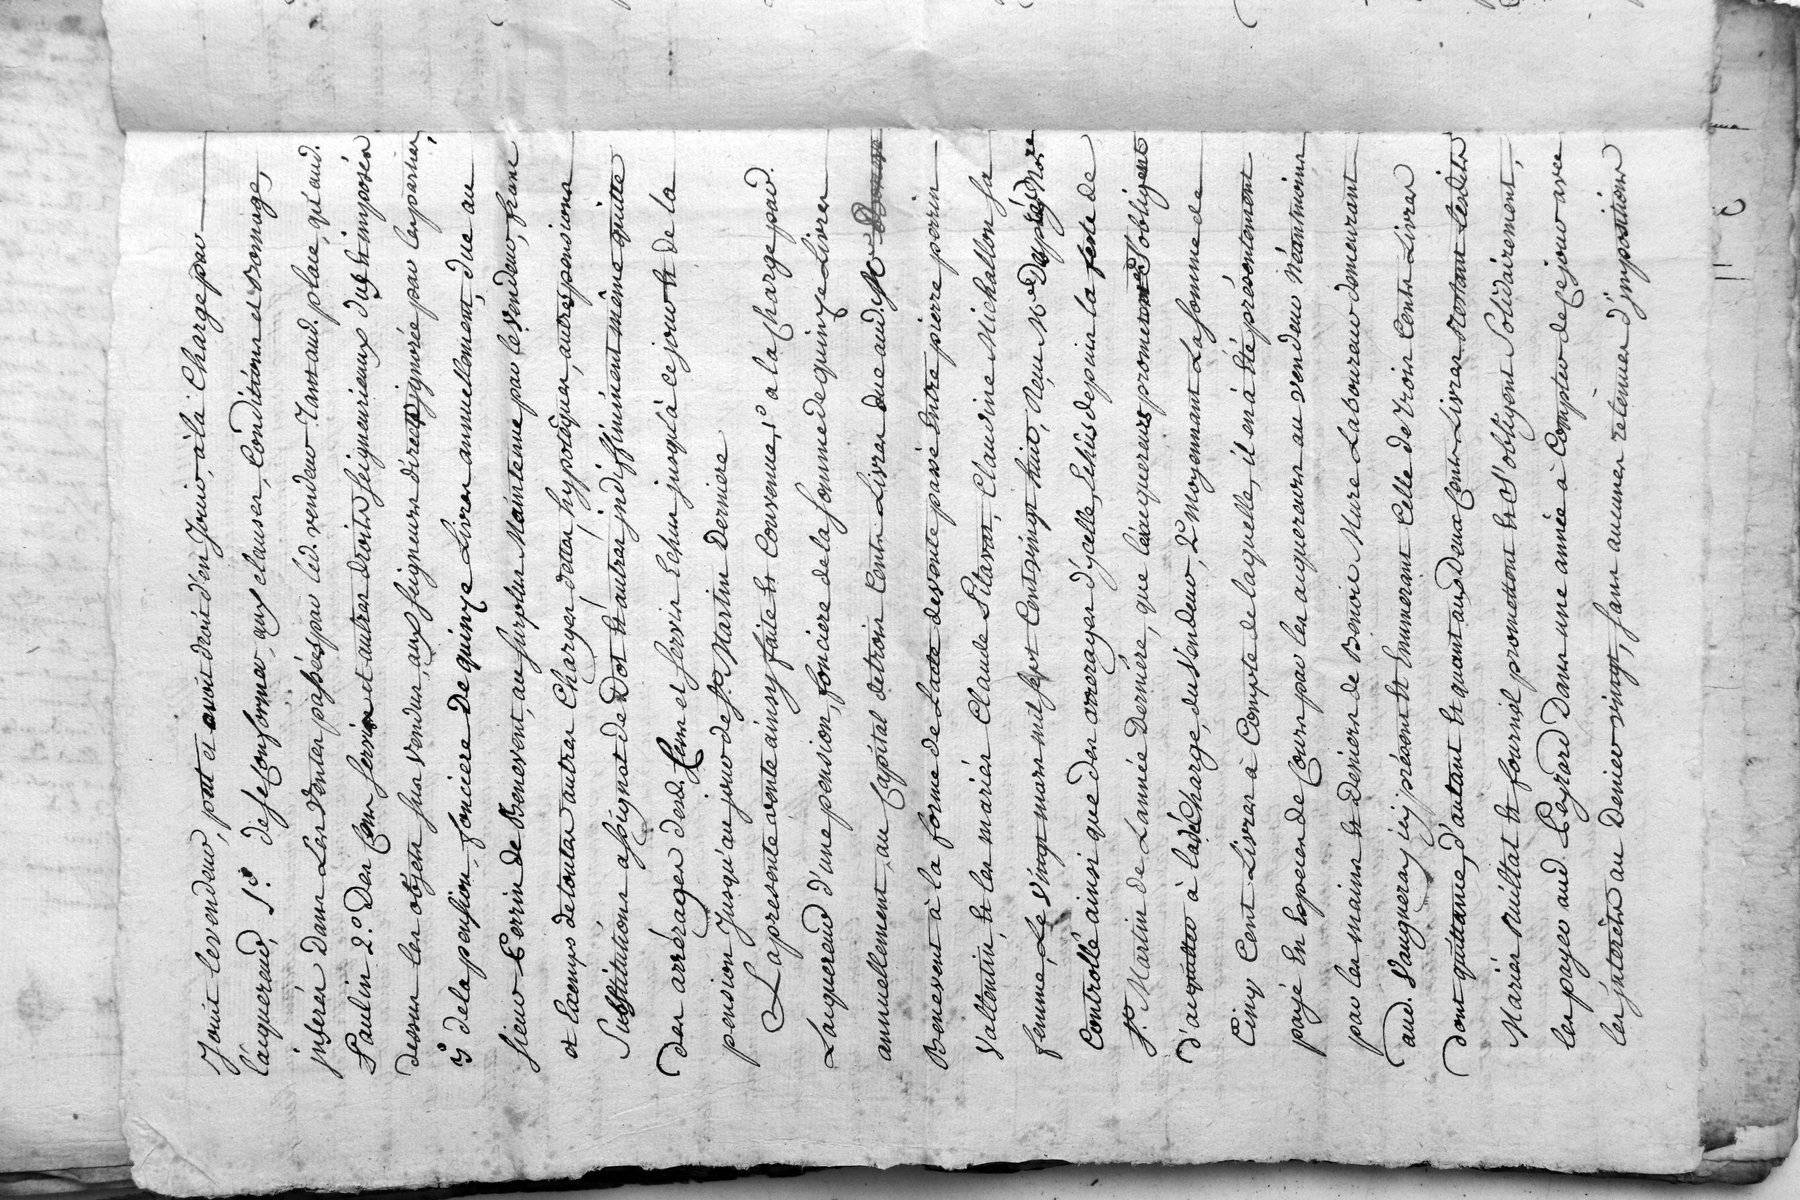 Jouit le vendeur, peut et avoit droit d'en Jouir, à la Charge par
l'aquereur, 1.° de se Conformer, aux clauses, Conditions et
inseréés Dans Les Ventes passéés par led. vendeur Tant aud. place, qu'aud.
Paulin 2.° Des Cens servis et autres droits seigneuriaux dus & imposés
dessus les objets sus vendus, aux seigneurs directs, ignorée par les parties,
3° de la pension fonciere De quinze Livres annuellement, due au
sieur Perrin de Benevent, au surplus Maintenue par le Vendeur, franc
et Exempt de toutes autres Charges, dettes, hypoteques, autres pensions
Substitutions assignat de Dot & autres indiffiniment même quitte
Des arrérages desd. Cens et servis Echus jusqu'à ce jour & de la
pension Jusqu'au jour de St. Martin Derniere
La presente vente ainsy faite & Convenue, 1° a la Charge par
L'aquereur d'une pension, fonciere de la somme de quinze Livres
annuellement, au Capital de trois Cents Livres due aud. Sr
Benevent à la forme de Lacte de vente passé Entre pierre perrin
Valentin, & les mariés Claude Pitavat, Claudine Michallon sa
femme, Le Vingt mars mil sept Cent vingt huit, Reçu Me Nore
Controllé ainsi que des arrerages d'ycelle, Echus depuis la feste de
St. Martin de L'année Derniére, que les aquereurs promettent & S'obligent
d'acquitter à la décharge, du Vendeur, 2° Moyennant La somme de
Cinq Cent Livres à Compte de laquelle, il en a été présentement
payé En Especes de Cours par les aquereurs au vendeur Néantmoins
par les mains & Deniers de Benoit Mure Laboureur demeurant
aud. Vaugneray icy présent & Enumerant Celle de trois Cents Livres
dont quittance, d'autant & quant aux Deux Cents Livres Restant Lesdits
Mariés & fournel promettent & S'obligent Solidairement,
les payer aud Peyrard Dans une année à Compter de ce jour avec
les intérêts au Denier vingt, sans aucunes retenues d'impositions